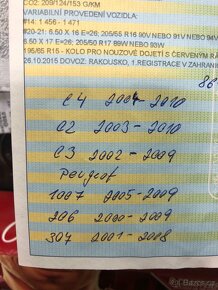 CO2: 209/124/153 G/KM
VARIABILNÍ PROVEDENÍ VOZIDLA:
#14: 1 456 - 1 471
#20-21: 6.50 X 16 E=26; 205/55 R16 90V NEBO 91V NEBO 94V
6.50 X 17 E=26; 205/50 R17 89W NEBO 93W
195/65 R15 - KOLO PRO NOUZOVÉ DOJETÍ S ČERVENÝM RÁ
26.10.2015 DOVOZ: RAKOUSKO, 1.REGISTRACE V ZAHRANI
86
C4 2004-2010
C2 2003-2010
C3 2002-2009
Peugeot
1007 2005-2009
206 2000-2009
307 2001-2008
Bazoš.cz